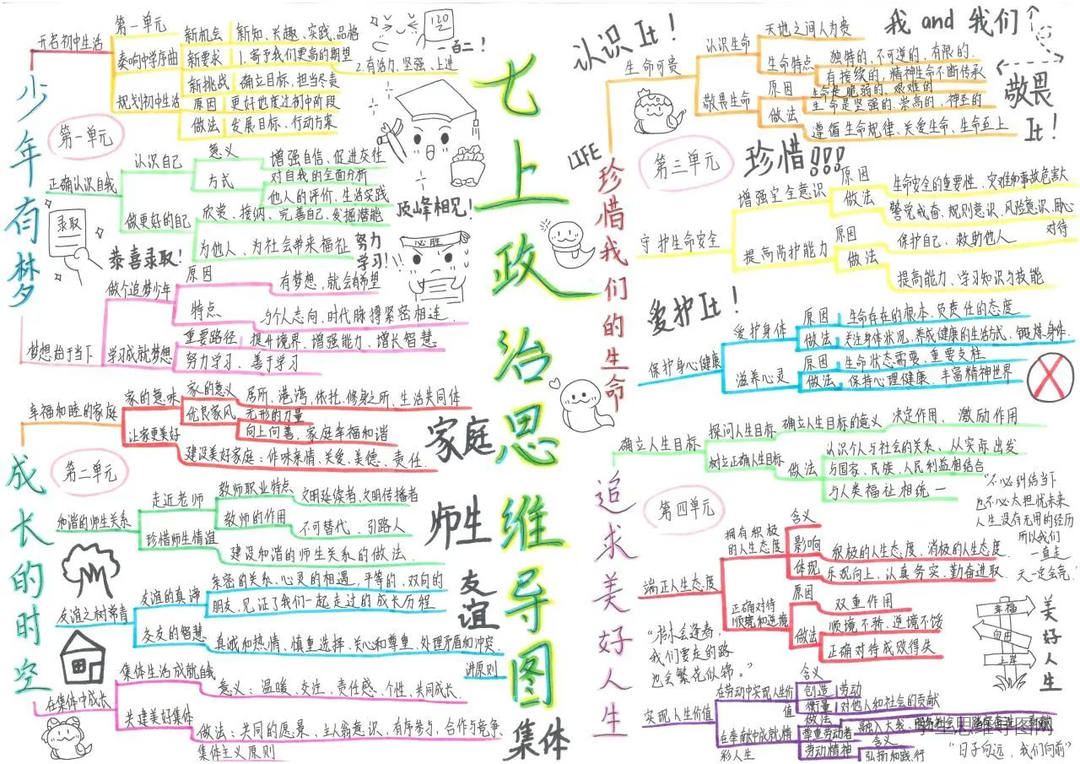 七上政治思维导图
少年有梦
第一单元
开启初中生活
奏响中学序曲
第一单元
新机会
新知、兴趣、实践、品格
新要求
1.寄予我们更高的期望
2.有活力、坚强、上进
新挑战
确立目标,担当尽责
规划初中生活
原因
更好地度过初中阶段
做法
发展目标、行动方案
120
一百二!
正确认识自我
认识自己
意义
增强自信、促进交往
方式
对自我的全面分析
他人的评价、生活实践
做更好的自己
欣赏、接纳、完善自己、发掘潜能
为他人、为社会带来福祉
录取
恭喜录取!
顶峰相见!
努力学习!
必胜
梦想始于当下
做个追梦少年
原因
有梦想,就会有希望
特点
与个人志向,时代脉搏紧密相连
学习成就梦想
重要路径
提升境界,增强能力,增长智慧
努力学习、善于学习
成长的时空
第二单元
幸福和睦的家庭
家的意味
家的意义
居所、港湾、依托、修身之所、生活共同体
优良家风
无形的力量
向上向善,家庭幸福和谐
让家更美好
建设美好家庭:体味亲情、关爱、美德、责任.
家庭
和谐的师生关系
走近老师
教师职业特点
文明延续者、文明传播者
教师的作用
不可替代、引路人
珍惜师生情谊
建设和谐的师生关系的做法.
师生
友谊之树常青
友谊的真谛
亲密的关系,心灵的相遇,平等的,双向的
朋友,见证了我们一起走过的成长历程
交友的智慧
真诚和热情,慎重选择,关心和尊重,处理矛盾和冲突
讲原则
友谊
在集体中成长
集体生活成就我
意义:温暖、交往、责任感、个性、共同成长.
共建美好集体
做法:共同的愿景、主人翁意识、有序参与、合作与竞争
集体主义原则
集体
认识It!
我 and 我们
敬畏It!
LIFE
珍惜我们的生命
第三单元
珍惜!!!
生命可贵
认识生命
天地之间人为贵
生命特点
独特的,不可逆的,有限的.
有接续的,精神生命不断传承
敬畏生命
原因
生命是脆弱的、艰难的
生命是坚强的、崇高的、神圣的
做法
遵循生命规律、关爱生命,生命至上
守护生命安全
增强安全意识
原因
生命安全的重要性,灾难和事故危害大
做法
警觉戒备、规则意识、风险意识、用心对待
提高防护能力
原因
保护自己、救助他人
做法
提高能力、学习知识与技能
爱护It!
保护身心健康
爱护身体
原因
生命存在的根本,负责任的态度
做法
关注身体状况,养成健康的生活方式,锻炼身体.
滋养心灵
原因
生命状态需要,重要支柱
做法
保持心理健康、丰富精神世界
追求美好人生
第四单元
确立人生目标
探问人生目标
确立人生目标的意义
决定作用,激励作用
树立正确人生目标
做法
认识个人与社会的关系,从实际出发
与国家、民族、人民利益相结合
与人类福祉相统一
“不必纠结当下
也不必太担忧未来
人生没有无用的经历
所以我们
一直走
天一定会亮.”
端正人生态度
拥有积极的人生态度
含义
影响
积极的人生态度、消极的人生态度
体现
乐观向上,认真务实,勤奋进取.
正确对待顺境和逆境
原因
双重作用
做法
顺境不骄,逆境不馁
正确对待成败得失
我们要走的路
也会繁花似锦.”
幸福
自由
上岸
美好人生
实现人生价值
在劳动中实现人生价值
含义
创造
劳动
衡量
对他人和社会的贡献
在奉献中成就精彩人生
做法
尊重劳动者
劳动精神
含义
弘扬和践行
学生思维导图网
“日子向远,我们向前”